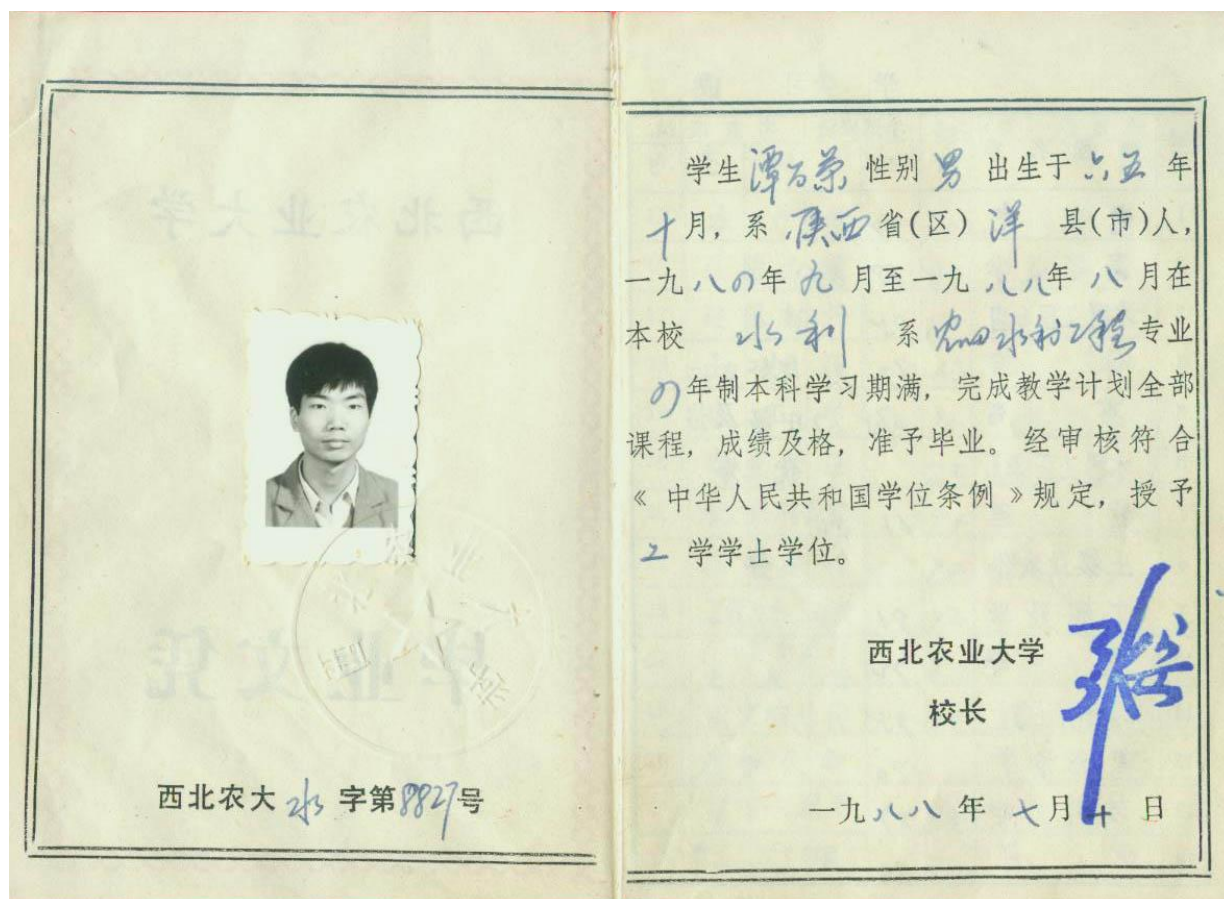 西北农大 水 字第8827号
学生 谭百荣 性别 男 出生于 六五 年
十月，系 陕西 省(区) 洋 县(市)人，
一九八四年九月至一九八八年八月在
本校 水利 系 农田水利工程专业
四年制本科学习期满，完成教学计划全部
课程，成绩及格，准予毕业。经审核符合
《中华人民共和国学位条例》规定，授予
工 学学士学位。
西北农业大学
校长
一九八八年 七月十日